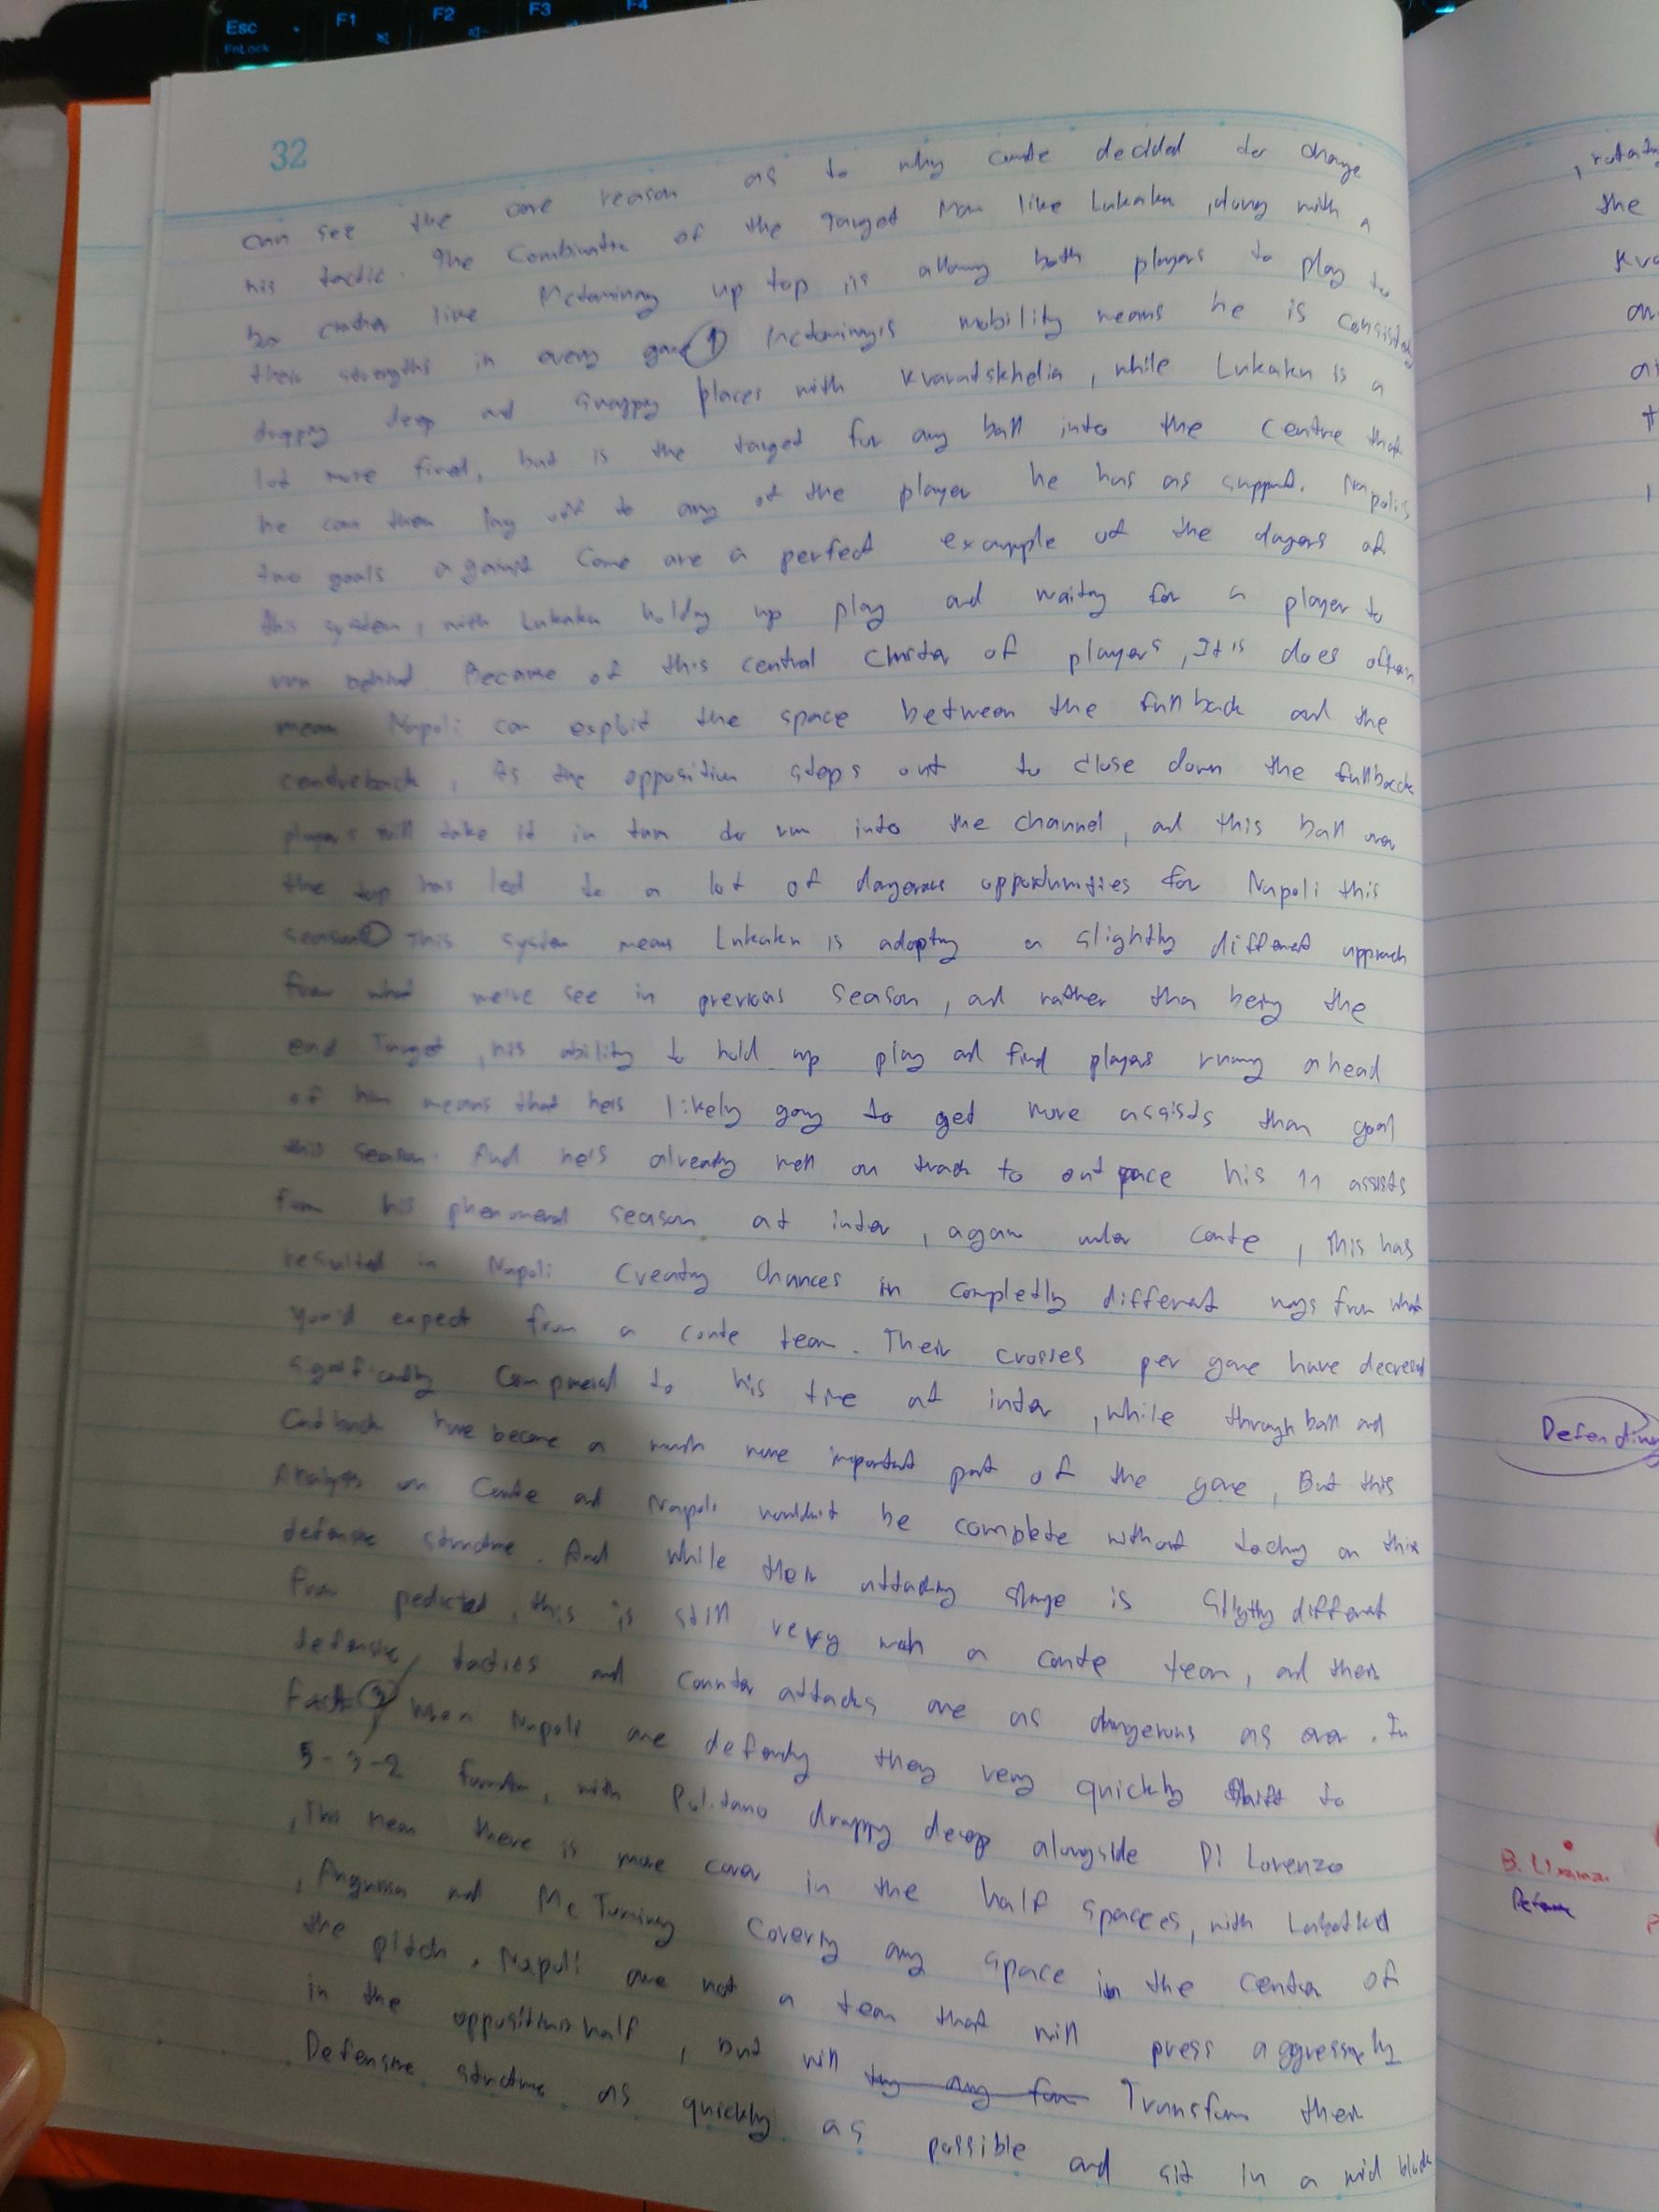 Esc
FnLock
F1
F2
F3
F4
32
can see the core reason as to why conte decided to change
his tactic. The Combination of the Target Man like Lukaku, along with a
box crasher like Mctominay up top is allowing both players to play to
their strengths in every game ① Mctominay's mobility means he is consistently
dropping deep and swapping places with Kvaratskhelia, while Lukaku is a
lot more fixed, but is the target for any ball into the centre that
he can then lay off to any of the player he has as support. Napoli's
two goals against Como are a perfect example of the dangers of
this system, with Lukaku holding up play and waiting for a player to
run behind. Because of this central cluster of players, It is does often
mean Napoli can exploit the space between the fullback and the
centreback, As the opposition steps out to close down the fullback
players will take it in turn to run into the channel, and this ball over
the top has led to a lot of dangerous opportunities for Napoli this
season This system means Lukaku is adopting a slightly different approach
from what we've see in previous season, and rather than being the
end Target, his ability to hold up play and find players runny ahead
of him means that he's likely going to get more assists than goal
this season. And he's already well on track to outpace his 11 assists
from his phenomenal season at inter, again under conte, this has
resulted in Napoli Creating Chances in completly different ways from what
you'd expect from a conte team. Their crosses per game have decreased
significantly Compared to his time at inter, while through ball and
Cutback have become a much more important part of the game, But this
Analysis on Conte and Napoli wouldn't be complete without touching on this
defensive structure. And while their attacking shape is slightly different
from predicted, this is still very much a conte team, and their
defensive tactics and counter attacks are as dangerous as ever. In
fact ③ when Napoli are defending they very quickly shift to
5-3-2 formation, with Politano dropping deep alongside Di Lorenzo
, This mean there is more cover in the half spaces, with Lobotka
, Anguissa and McTominay covering any space in the center of
the pitch. Napoli are not a team that will press aggressively
in the opposition's half, but will try any for Transform their
Defensive structure as quickly as possible and sit in a mid block
the
Defending
B.